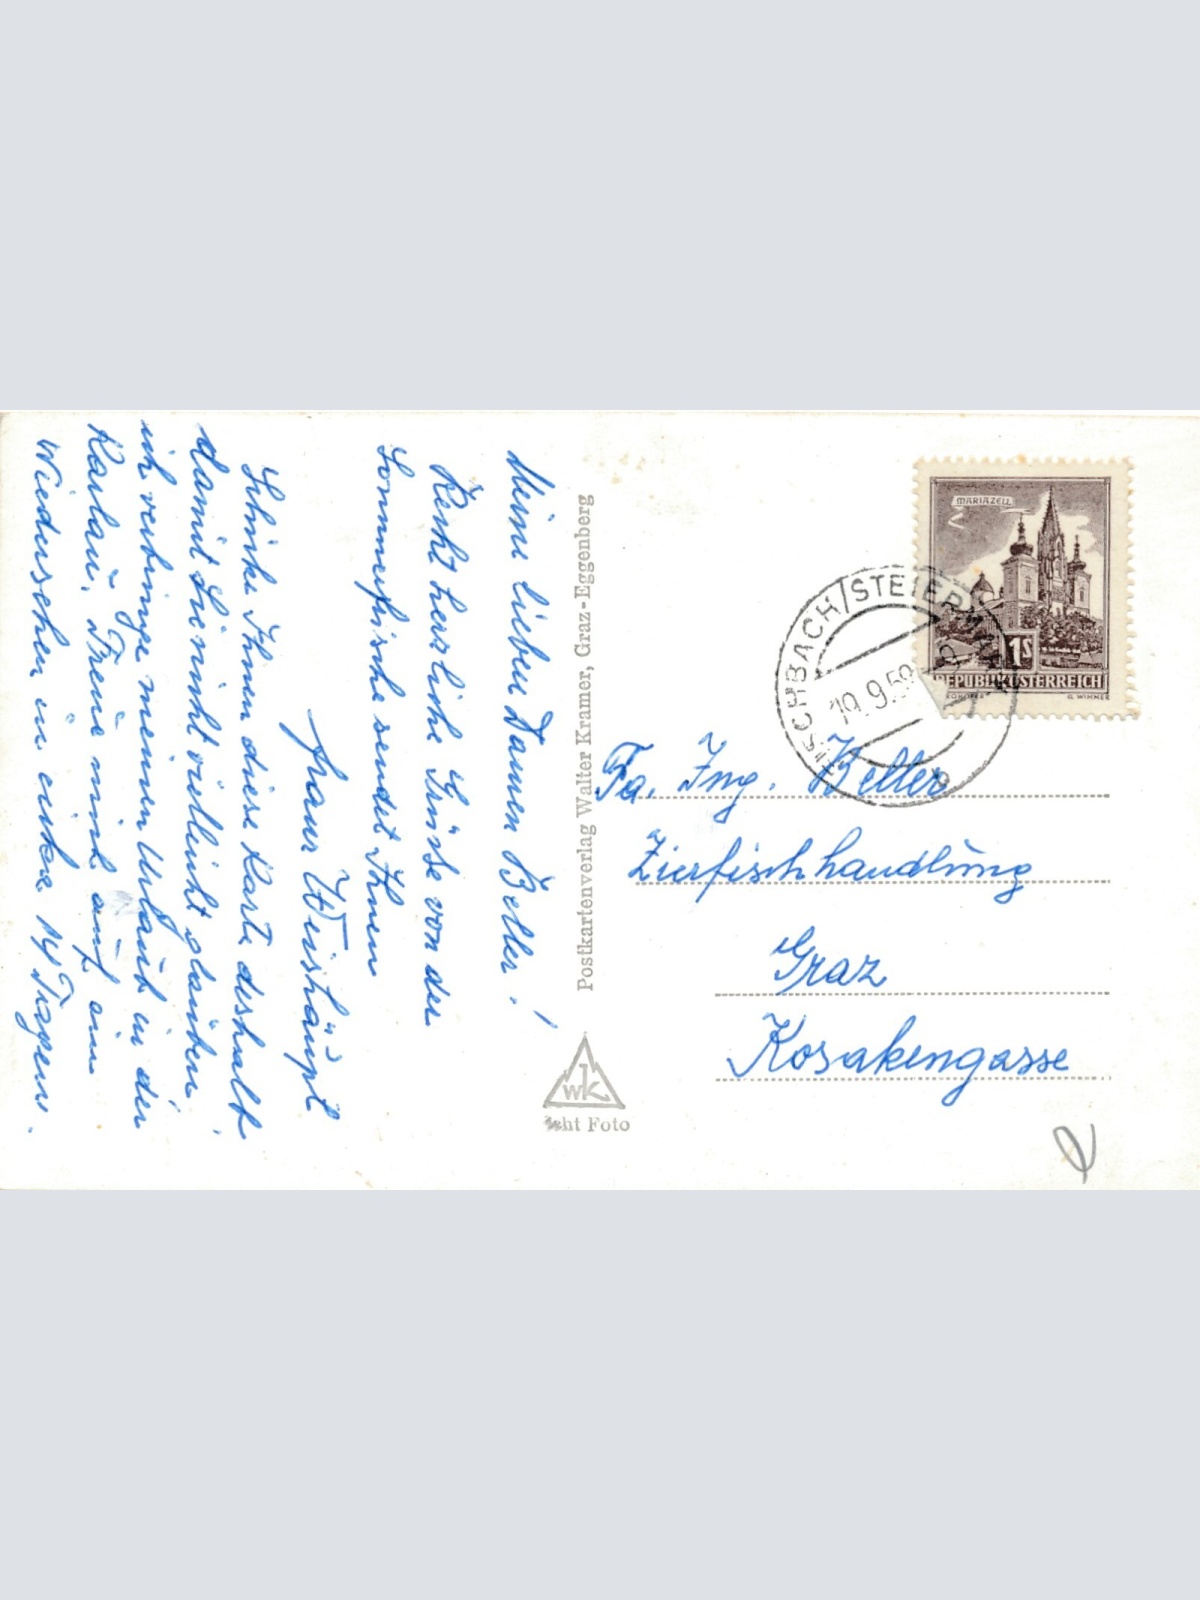 Meine lieben Damen Beller!
Recht herzliche Grüße von der
Sommerfrische sendet Ihnen
Franz Weishäupl
Schicke Ihnen diese Karte deshalb
damit Sie nicht vielleicht glauben
ich verbringe meinen Urlaub in der
Karlau. Freue mich auf ein
Wiedersehen in cirka 14 Tagen.
Postkartenverlag Walter Kramer, Graz-Eggenberg
WK
Echt Foto
MARIAZELL
1S
REPUBLIK ÖSTERREICH
G. WIMMER
FISCHBACH/STEIERMARK
19.9.59
Fa. Ing. Beller
Zierfischhandlung
Graz
Kosakengasse